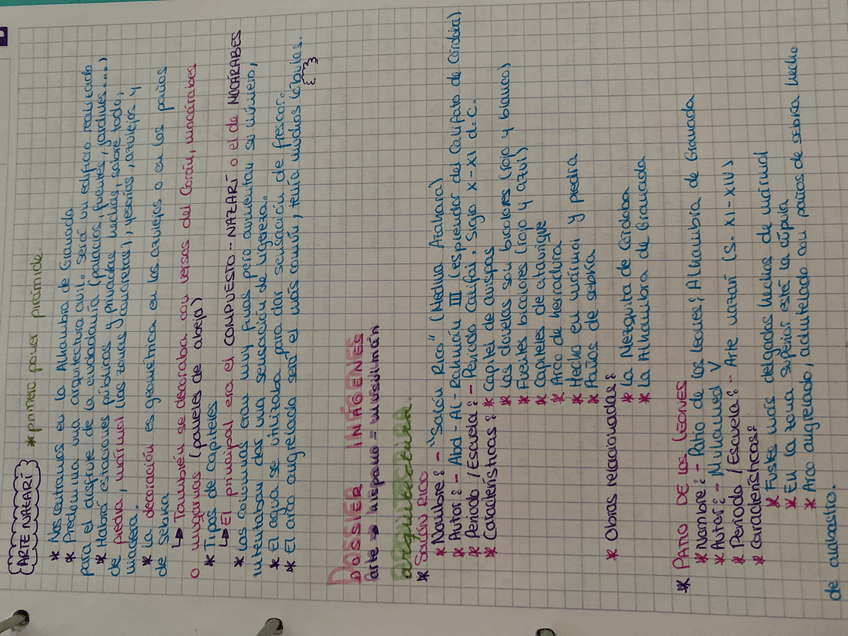 ARTE NAZARÍ * primero poner pirámide.
* Nos centramos en la Alhambra de Granada
* Predomina una arquitectura civil. Será un edificio realizado
para el disfrute de la ciudadanía (palacios, fuentes, jardines...)
* Habrá estaciones públicas y privadas hechas, sobre todo,
de piedra, mármol (las zonas y concretas), yeserías, azulejos y
madera.
* La decoración es geométrica en los azulejos o en los paños
de sebka.
↳ También se decoraba con versos del Corán, mocárabes
o muqarnas (paneles de abeja)
* Tipos de capiteles
↳ El principal era el COMPUESTO-NAZARÍ o el de MOCÁRABES
* Las columnas eran muy finas pero aumentan su número,
intentaban dar una sensación de ligereza.
* El agua se utilizaba para dar sensación de frescor.
* El arco angrelado será el más común, tenía muchos lóbulos.
DOSSIER IMÁGENES
arte → hispano-musulmán
arquitectura.
* SALÓN RICO
* Nombre: - "Salón Rico" (Medina Azahara)
* Autor: - Abd-AL-Rahman III (esplendor del Califato de Córdoba)
* Período / Escuela: - Período Califal. Siglo X-XI d.C.
* Características: * Capitel de avispas
* Las dovelas son bicolores (rojo y blanco)
* Fustes bicolores (rojo y azul)
* Capiteles de ataurique
* Arco de herradura
* Hecho en mármol y piedra
* Paños de sebka
* Obras relacionadas:
* La Mezquita de Córdoba
* La Alhambra de Granada
* PATIO DE LOS LEONES
* Nombre: - Patio de los leones; Alhambra de Granada
* Autor: - Muhamed V
* Período / Escuela: - Arte nazarí (S. XI-XIV)
* Características:
* Fustes más delgados hechos de mármol
* En la zona superior está la cúpula
* Arco angrelado, adintelado con paños de sebka hecho
de alabastro.